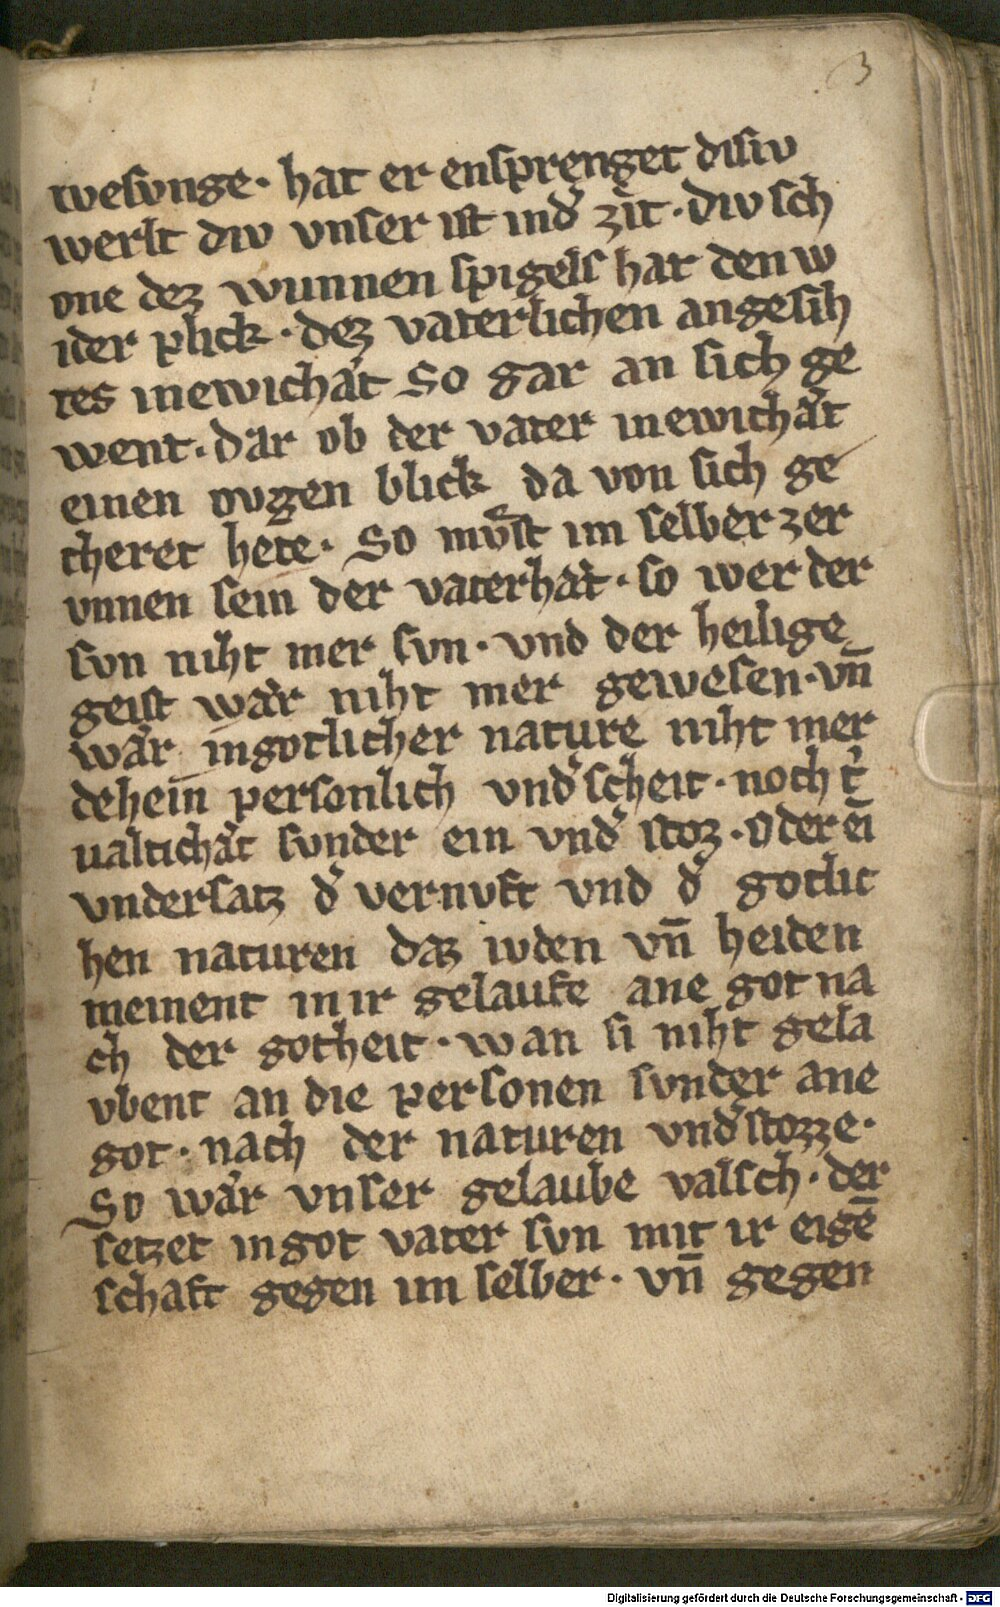 3
wesvnge · hat er ensprenget disiv
werlt div vnser ist ind͛ zit · div sch
one dez wunnen spigels hat den w
ider plick · dez vaterlichen angesih
tes inewichat So gar an sich ge
went · dar ob der vater inewichat
einen ougen blick da von sich ge
cheret hete · So mvͦst im selber zer
vnnen sein der vaterhat · so wer der
svn niht mer svn · vnd der heilige
geist war niht mer gewesen · vn̄
war ingotlicher nature niht mer
dehein personlich vnd͛scheit · noch t͛
ualtichat svnder ein vnd͛ stoz · Oder eī
vndersatz d͛ vernvft vnd d͛ gotlic
hen naturen daz ivden vn̄ heiden
meinent in ir gelaufe ane got na
ch der gotheit · wan si niht gela
vbent an die personen svnder ane
got · nach der naturen vnd͛stozze ·
So war vnser gelaube valsch · der
setzet in got vater svn mit ir eigē
schaft gegen im selber · vn̄ gegen
Digitalisierung gefördert durch die Deutsche Forschungsgemeinschaft - DFG